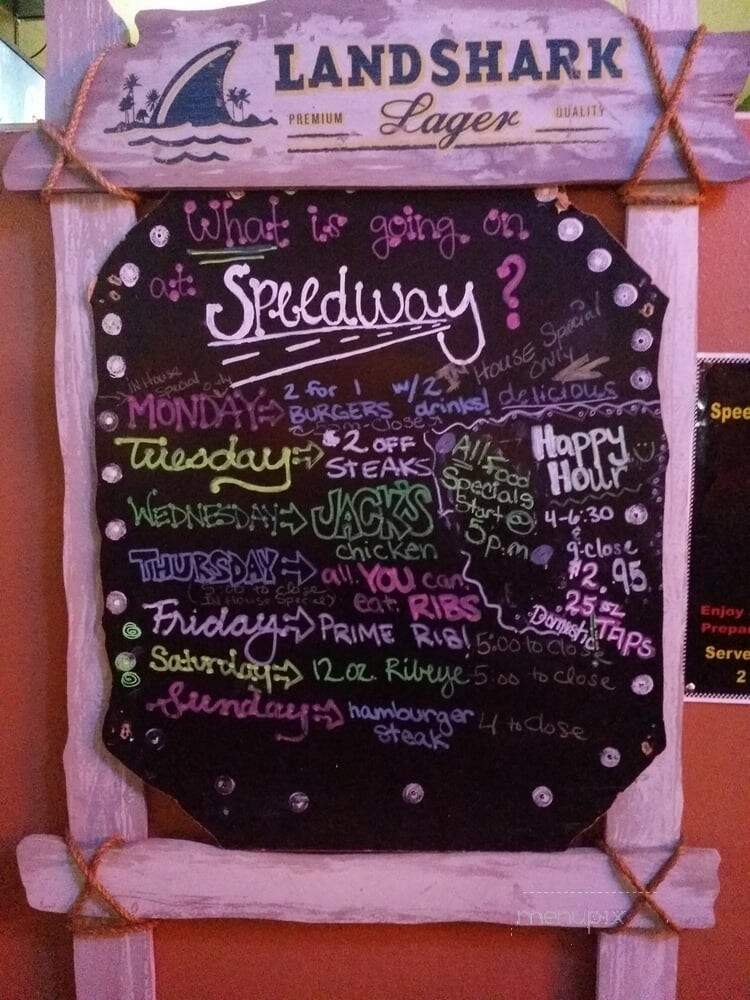 LANDSHARK
PREMIUM Lager QUALITY
What is going on
at: Speedway ?
IN House Special only
IN HOUSE Special ONLY
MONDAY 2 for 1 w/2
BURGERS drinks! delicious
5pm-Close
Tuesday $2 OFF
STEAKS
WEDNESDAY JACK'S
chicken
THURSDAY all YOU can
eat RIBS
(5:00 to close
IN House Special)
Friday PRIME RIB! 5:00 to close
Saturday 12 oz. Ribeye 5:00 to close
Sunday hamburger 4 to Close
steak
All Food
Specials
Start @
5p.m
Happy
Hour
4-6:30
9-close
$2.95
.25 oz
Domestic TAPS
Spee
Enjoy
Prepar
Serve
2
menupix